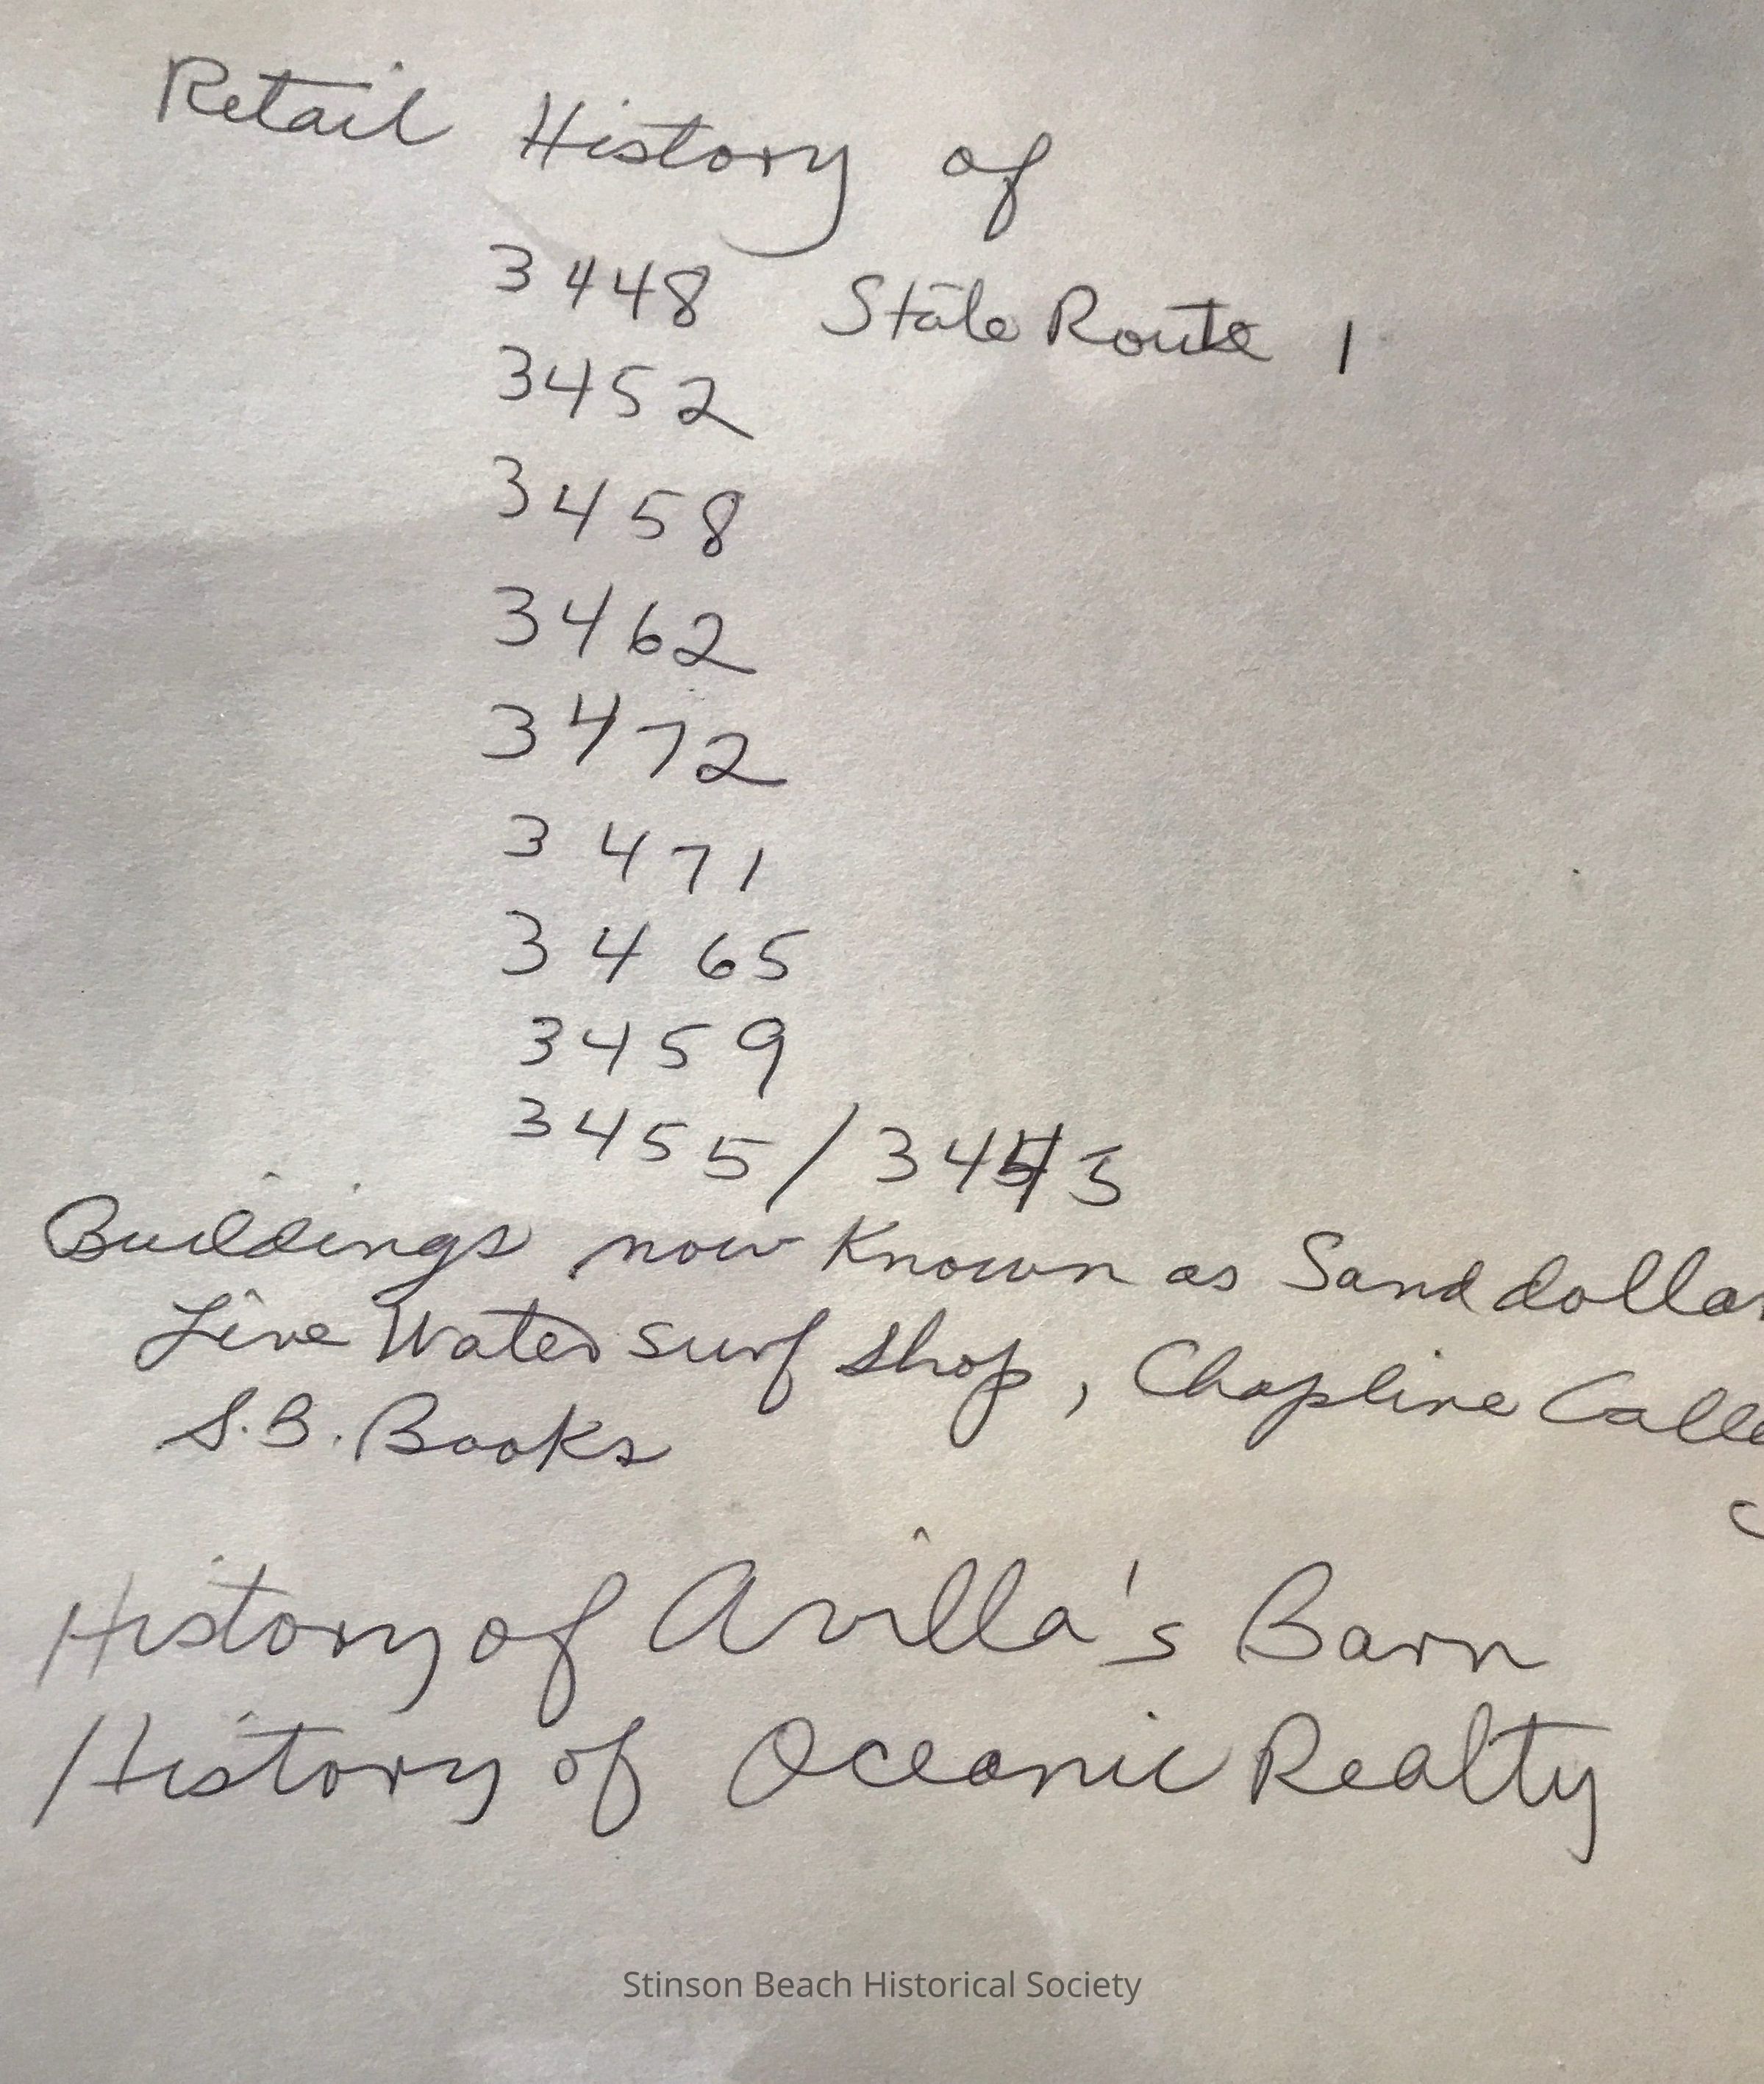 Retail History of
3448 State Route 1
3452
3458
3462
3472
3471
3465
3459
3455/3445
Buildings now Known as Sand dollar
Live Water surf shop, Chapline Galle
S.B. Books
History of Avilla's Barn
History of Oceanic Realty
Stinson Beach Historical Society